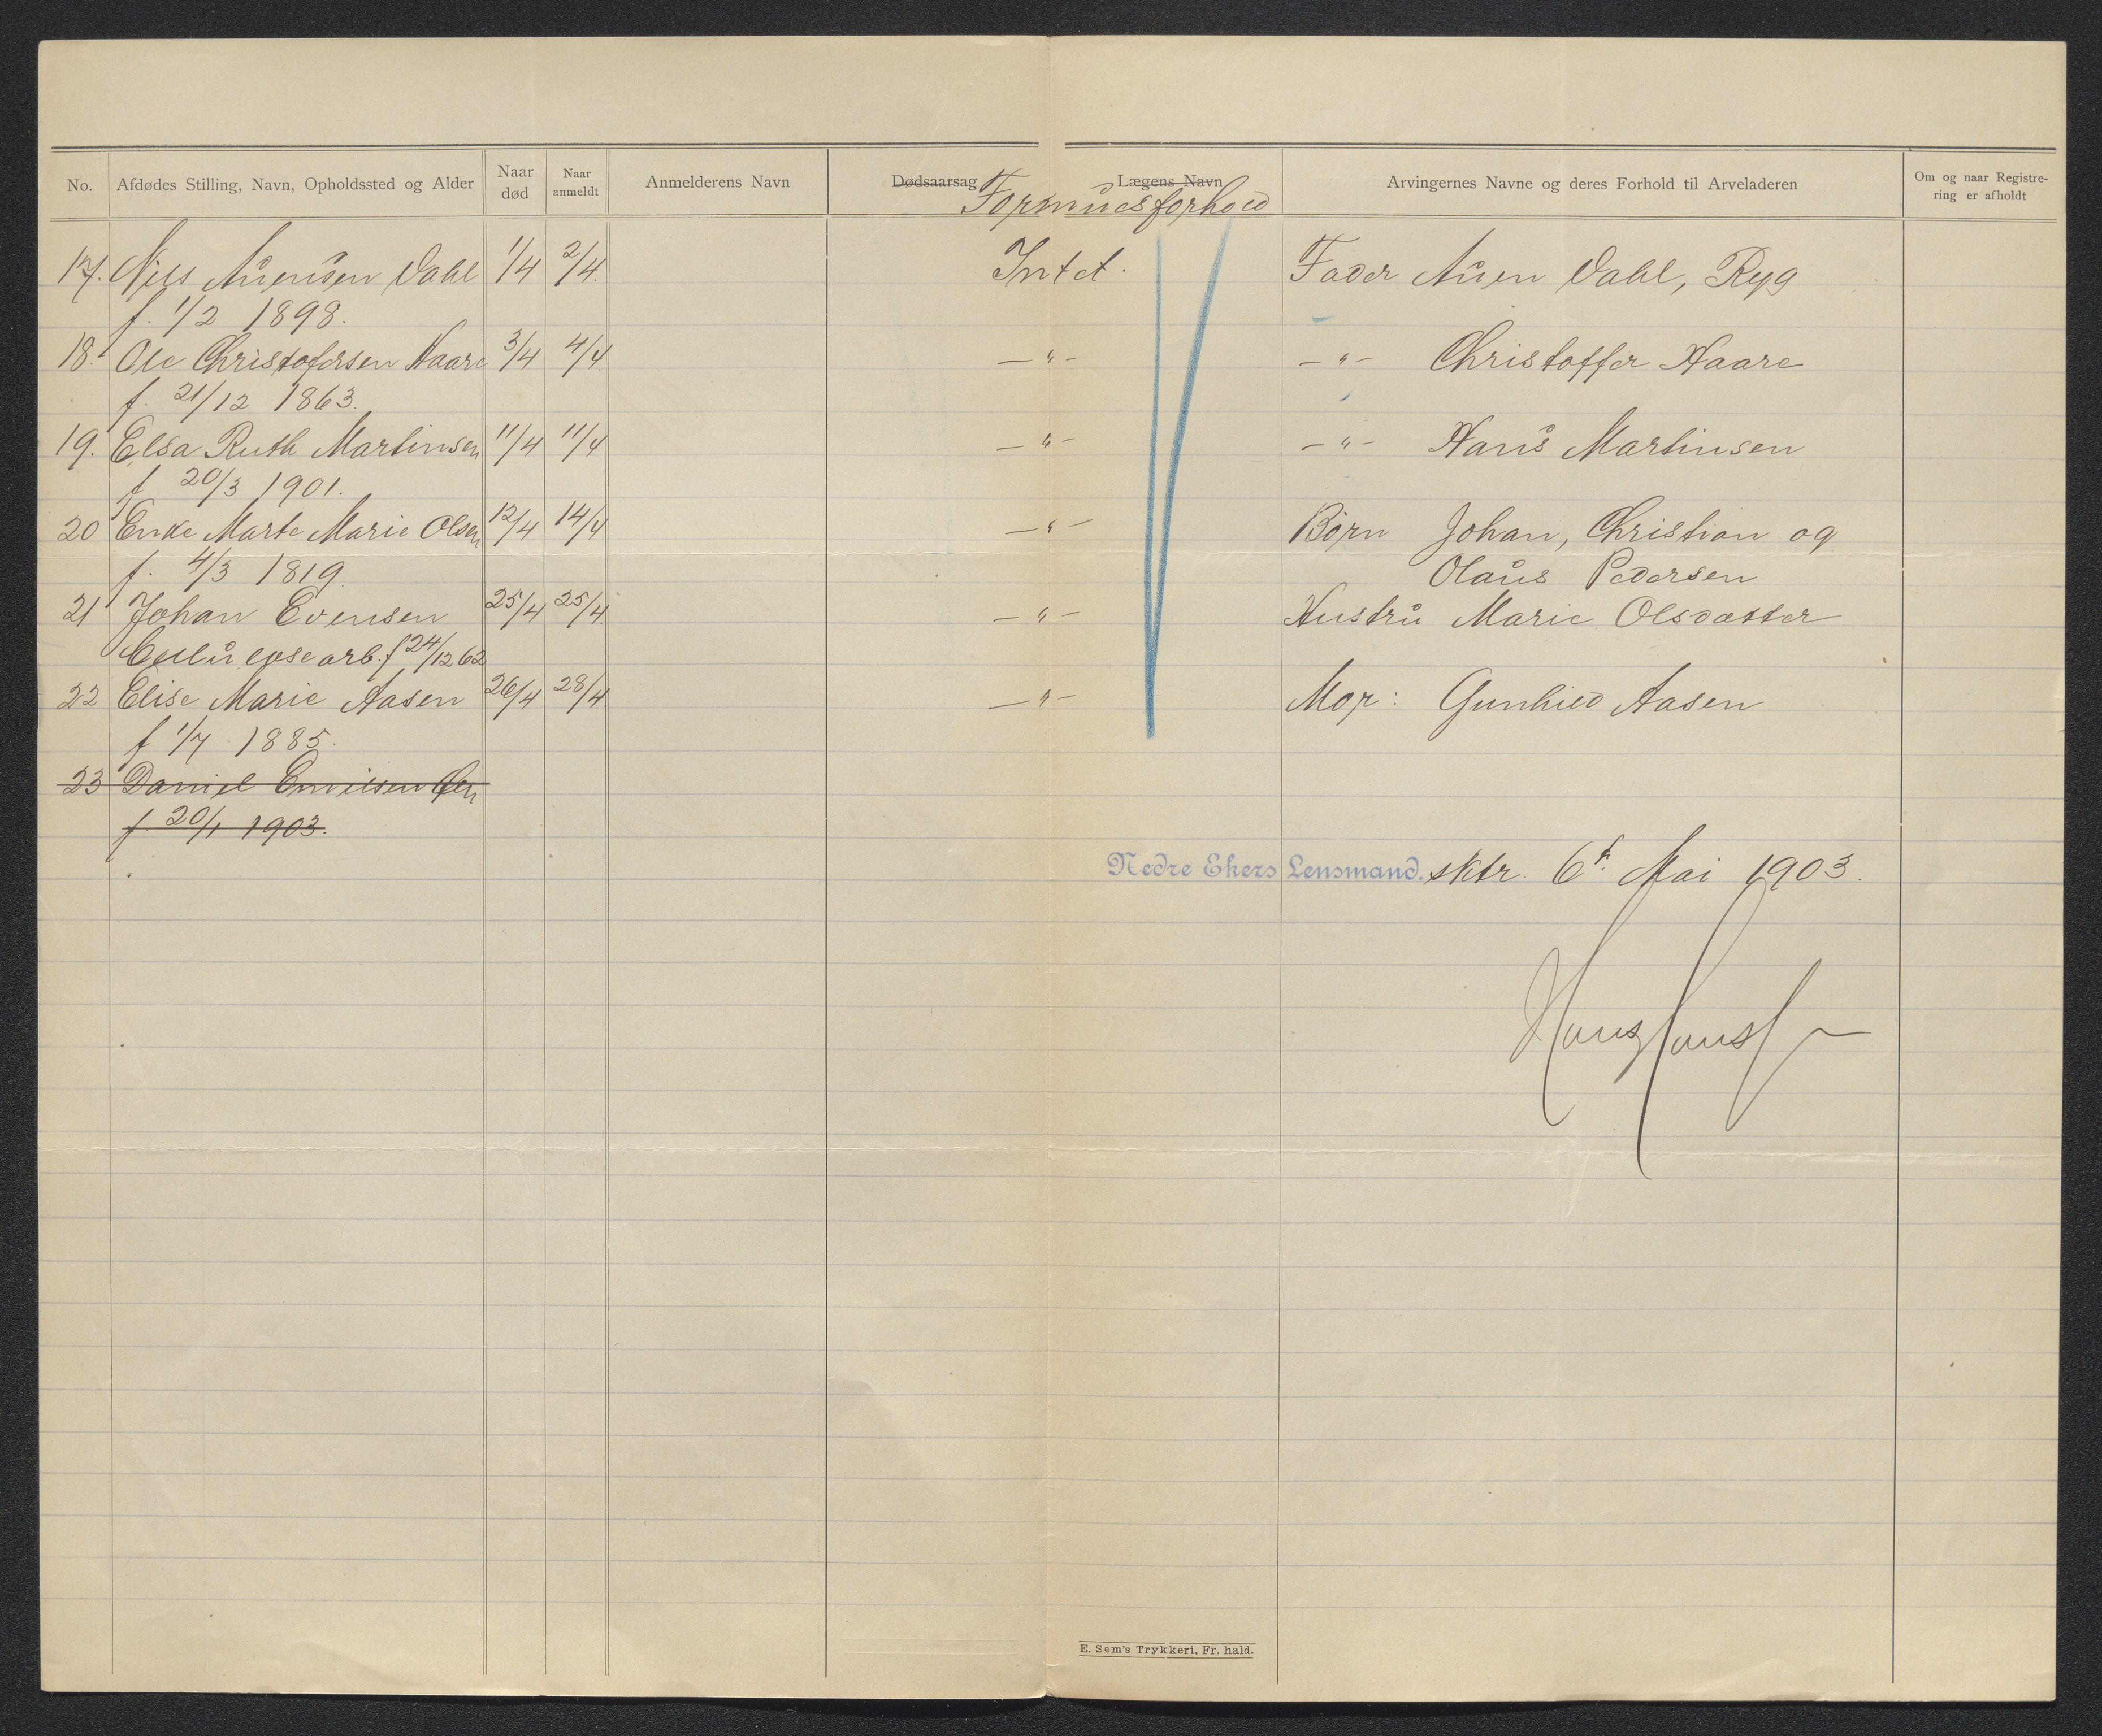 No. Afdødes Stilling, Navn, Opholdssted og Alder Naar død Naar anmeldt Anmelderens Navn Dødsaarsag Lægens Navn Arvingernes Navne og deres Forhold til Arveladeren Om og naar Registrering er afholdt
Formuesforhold
17. Nils Auensen Dahl 1/4 2/4 Intet. Fader Auen Dahl, Ryg
f. 1/2 1898.
18. Ole Christofersen Haare 3/4 4/4 — " — — " — Christoffer Haare
f. 21/12 1863.
19. Elsa Ruth Martinsen 11/4 11/4 — " — — " — Hans Martinsen
f 20/3 1901.
20 Enke Marte Marie Olsen 12/4 14/4 — " — Børn Johan, Christian og
f. 4/3 1819. Olaus Pedersen
21 Johan Evensen 25/4 25/4 — " — Hustru Marie Olsdatter
Cellulosearb. f 24/12 62
22 Elise Marie Aasen 26/4 28/4 — " — Mor: Gunhild Aasen
f 1/7 1885.
23 Daniel Emilsen
f. 20/1 1903.
Nedre Ekers Lensmand. sktr. 6t. Mai 1903.
E. Sem's Trykkeri, Fr. hald.